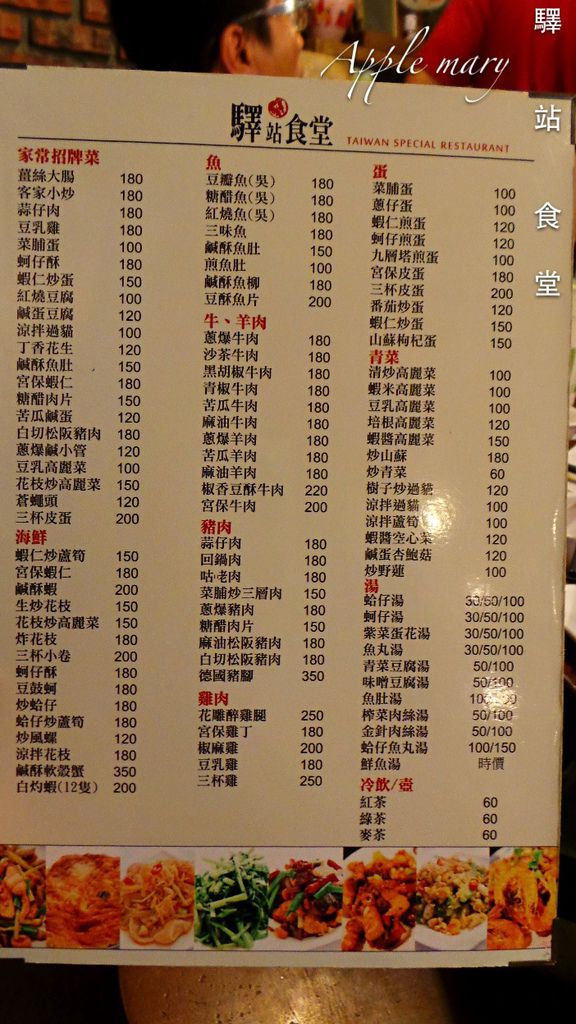 Apple mary
驛站食堂
驛站食堂
TAIWAN SPECIAL RESTAURANT
家常招牌菜
薑絲大腸 180
客家小炒 180
蒜仔肉 180
豆乳雞 180
菜脯蛋 100
蚵仔酥 180
蝦仁炒蛋 150
紅燒豆腐 100
鹹蛋豆腐 120
涼拌過貓 100
丁香花生 120
鹹酥魚肚 150
宮保蝦仁 180
糖醋肉片 150
苦瓜鹹蛋 120
白切松阪豬肉 180
蔥爆鹹小管 120
豆乳高麗菜 100
花枝炒高麗菜 150
蒼蠅頭 120
三杯皮蛋 200
海鮮
蝦仁炒蘆筍 150
宮保蝦仁 180
鹹酥蝦 200
生炒花枝 150
花枝炒高麗菜 150
炸花枝 180
三杯小卷 200
蚵仔酥 180
豆鼓蚵 180
炒蛤仔 180
蛤仔炒蘆筍 180
炒風螺 120
涼拌花枝 180
鹹酥軟殼蟹 350
白灼蝦(12隻) 200
魚
豆瓣魚(吳) 180
糖醋魚(吳) 180
紅燒魚(吳) 180
三味魚 180
鹹酥魚肚 150
煎魚肚 100
鹹酥魚柳 180
豆酥魚片 200
牛、羊肉
蔥爆牛肉 180
沙茶牛肉 180
黑胡椒牛肉 180
青椒牛肉 180
苦瓜牛肉 180
麻油牛肉 180
蔥爆羊肉 180
苦瓜羊肉 180
麻油羊肉 180
椒香豆酥牛肉 220
宮保牛肉 200
豬肉
蒜仔肉 180
回鍋肉 180
咕咾肉 180
菜脯炒三層肉 150
蔥爆豬肉 180
糖醋肉片 150
麻油松阪豬肉 180
白切松阪豬肉 180
德國豬腳 350
雞肉
花雕醉雞腿 250
宮保雞丁 180
椒麻雞 200
豆乳雞 180
三杯雞 250
蛋
菜脯蛋 100
蔥仔蛋 100
蝦仁煎蛋 120
蚵仔煎蛋 120
九層塔煎蛋 100
宮保皮蛋 180
三杯皮蛋 200
番茄炒蛋 120
蝦仁炒蛋 150
山蘇枸杞蛋 150
青菜
清炒高麗菜 100
蝦米高麗菜 100
豆乳高麗菜 100
培根高麗菜 120
蝦醬高麗菜 150
炒山蘇 180
炒青菜 60
樹子炒過貓 120
涼拌過貓 100
涼拌蘆筍 100
蝦醬空心菜 120
鹹蛋杏鮑菇 120
炒野蓮 100
湯
蛤仔湯 30/50/100
蚵仔湯 30/50/100
紫菜蛋花湯 30/50/100
魚丸湯 30/50/100
青菜豆腐湯 50/100
味噌豆腐湯 50/100
魚肚湯
榨菜肉絲湯 50/100
金針肉絲湯 50/100
蛤仔魚丸湯 100/150
鮮魚湯 時價
冷飲/壺
紅茶 60
綠茶 60
麥茶 60